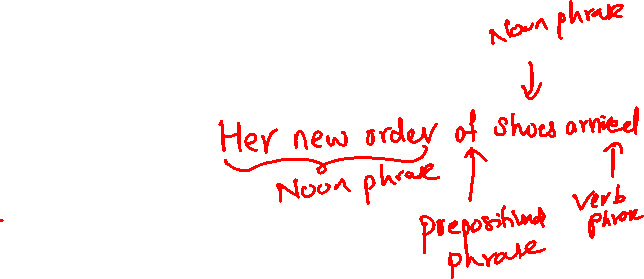 Noun phrase
Her new order of shoes arrived
Noun phrase
prepositional
phrase
verb
phrase